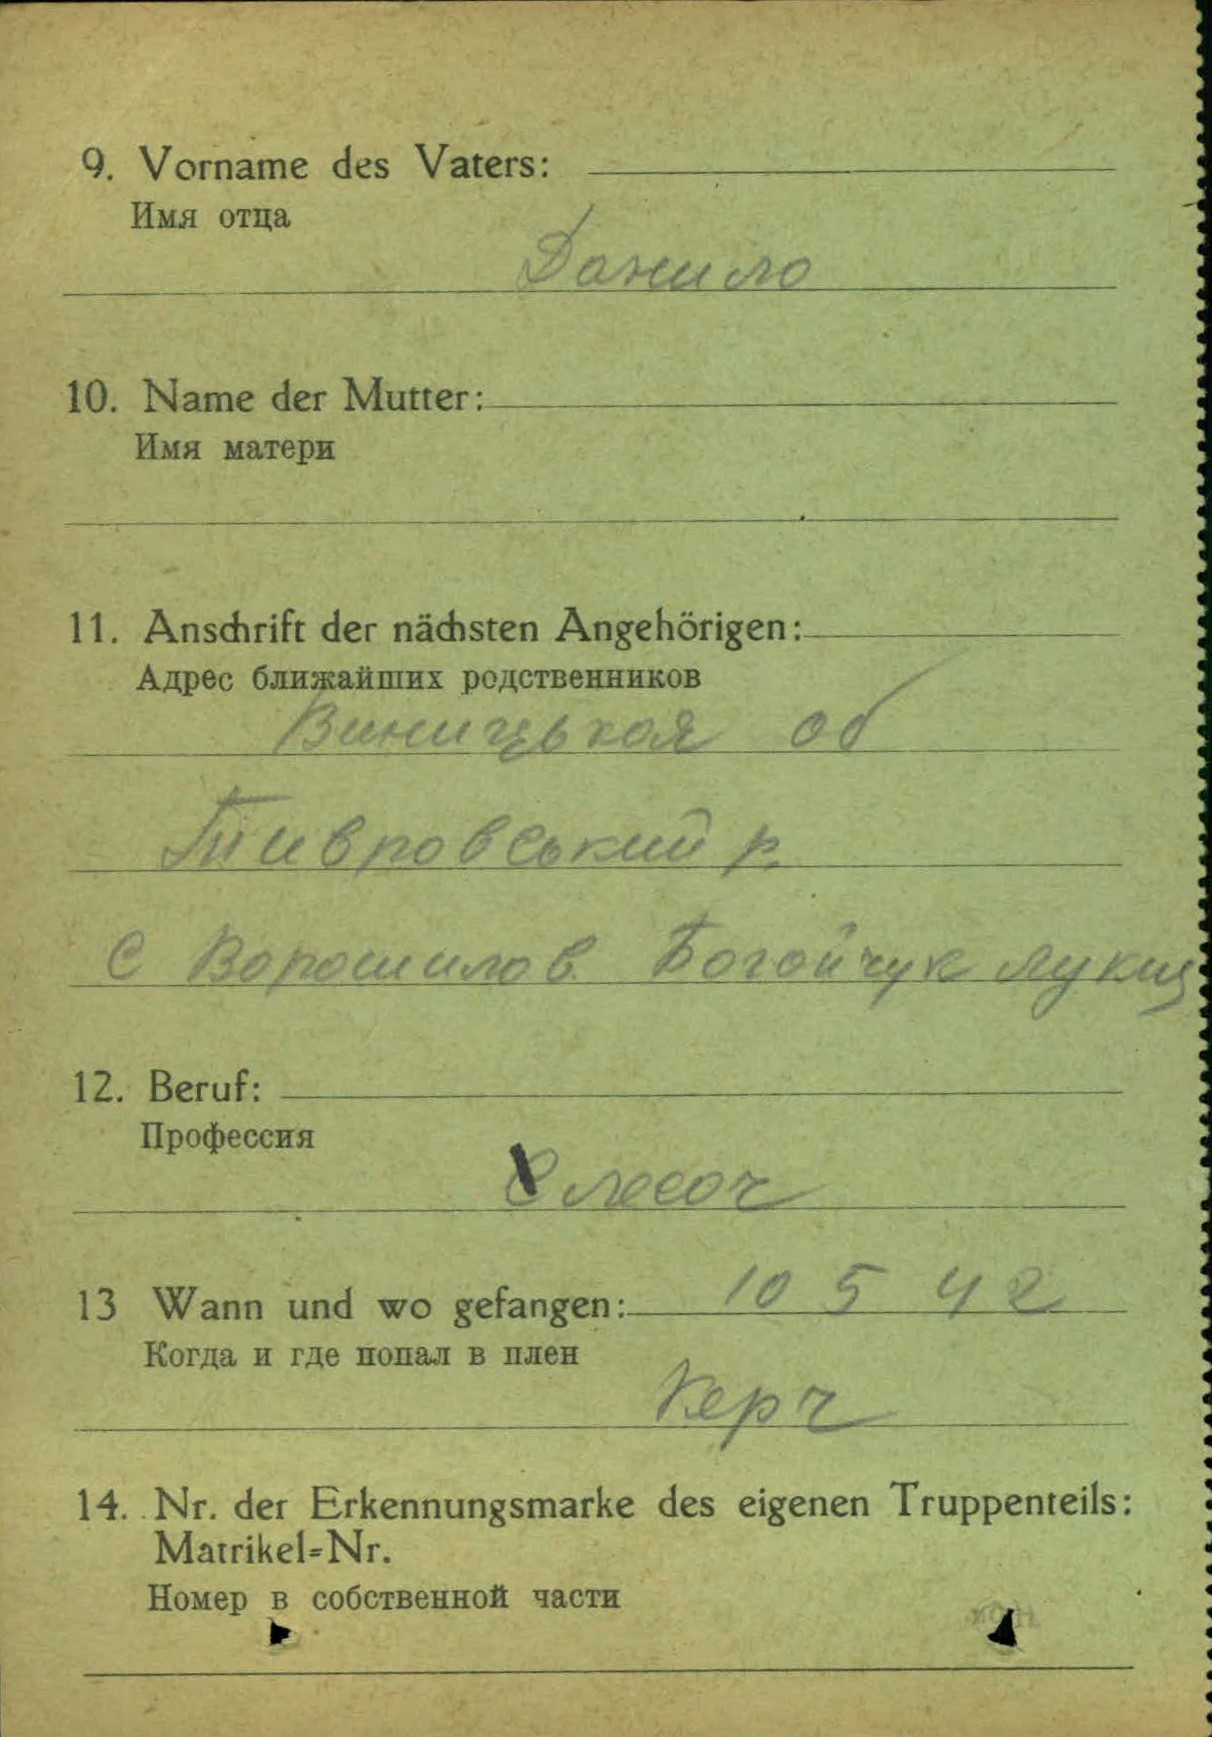 9. Vorname des Vaters:
Имя отца
Данило
10. Name der Mutter:
Имя матери
11. Anschrift der nächsten Angehörigen:
Адрес ближайших родственников
Виницькая об
Тивровський р.
с Ворошилов Богойчук
12. Beruf:
Профессия
13 Wann und wo gefangen: 10 5 42
Когда и где попал в плен
Керч
14. Nr. der Erkennungsmarke des eigenen Truppenteils:
Matrikel=Nr.
Номер в собственной части